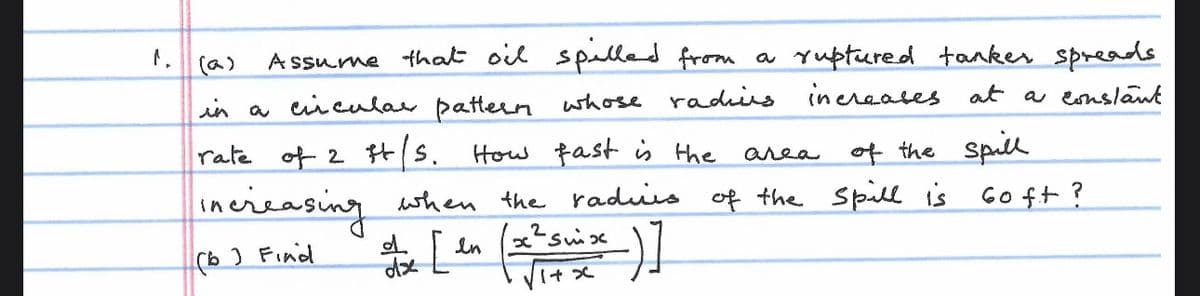 1. (a) Assume that oil spilled from a ruptured tanker spreads
in a circular pattern whose radius increases at a constant
rate of 2 ft/s. How fast is the area of the spill
increasing when the radius of the spill is 60 ft?
(b) Find d/dx [ln (x² sin x / √(1+x))]